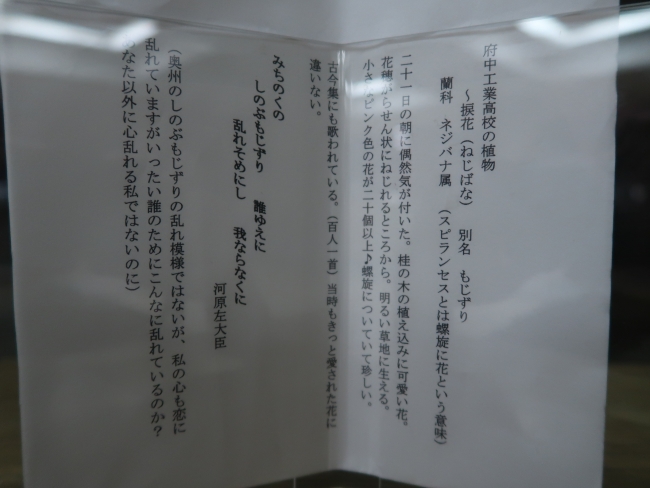 府中工業高校の植物
～捩花（ねじばな） 別名 もじずり
蘭科 ネジバナ属 （スピランセスとは螺旋に花という意味）
二十一日の朝に偶然気が付いた。桂の木の植え込みに可愛い花。
花穂がらせん状にねじれるところから。明るい草地に生える。
小さなピンク色の花が二十個以上♪螺旋についていて珍しい。
古今集にも歌われている。（百人一首）当時もきっと愛された花に
違いない。
みちのくの
しのぶもじずり 誰ゆえに
乱れそめにし 我ならなくに
河原左大臣
（奥州のしのぶもじずりの乱れ模様ではないが、私の心も恋に
乱れていますがいったい誰のためにこんなに乱れているのか？
あなた以外に心乱れる私ではないのに）